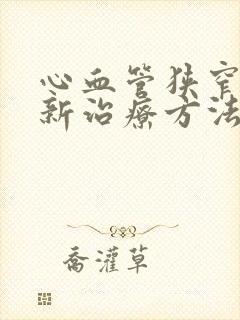 心血管狭窄
新治疗方法
乔灌草